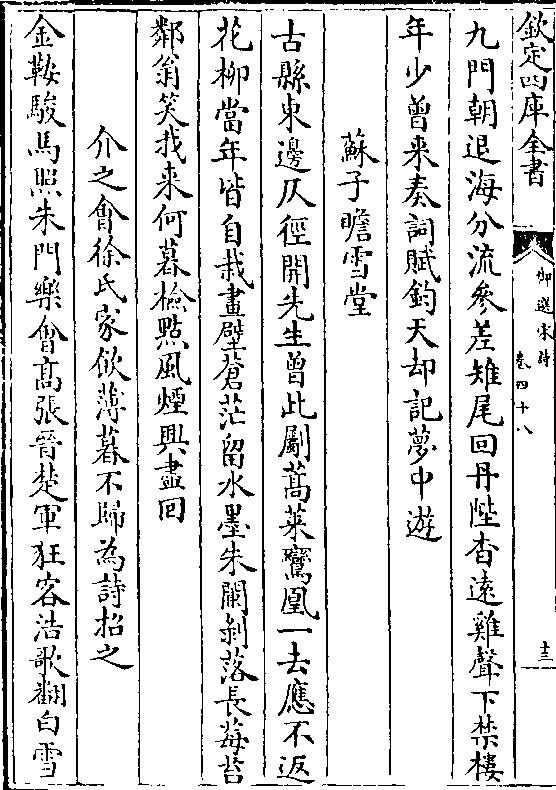 欽定四庫全書
御選宋詩
卷四十八
十三
九門朝退海分流參差雉尾回丹陛杳遠雞聲下禁樓
年少曾来奏詞賦鈞天却記夢中遊
蘇子瞻雪堂
古縣東邊仄徑開先生曾此劚蒿萊鸞凰一去應不返
花柳當年皆自栽畫壁蒼茫留水墨朱闌剝落長莓苔
鄰翁笑我来何暮檢點風煙興盡回
介之會徐氏家飲薄暮不歸為詩招之
金鞍駿馬照朱門樂會髙張晉楚軍狂客浩歌翻白雪